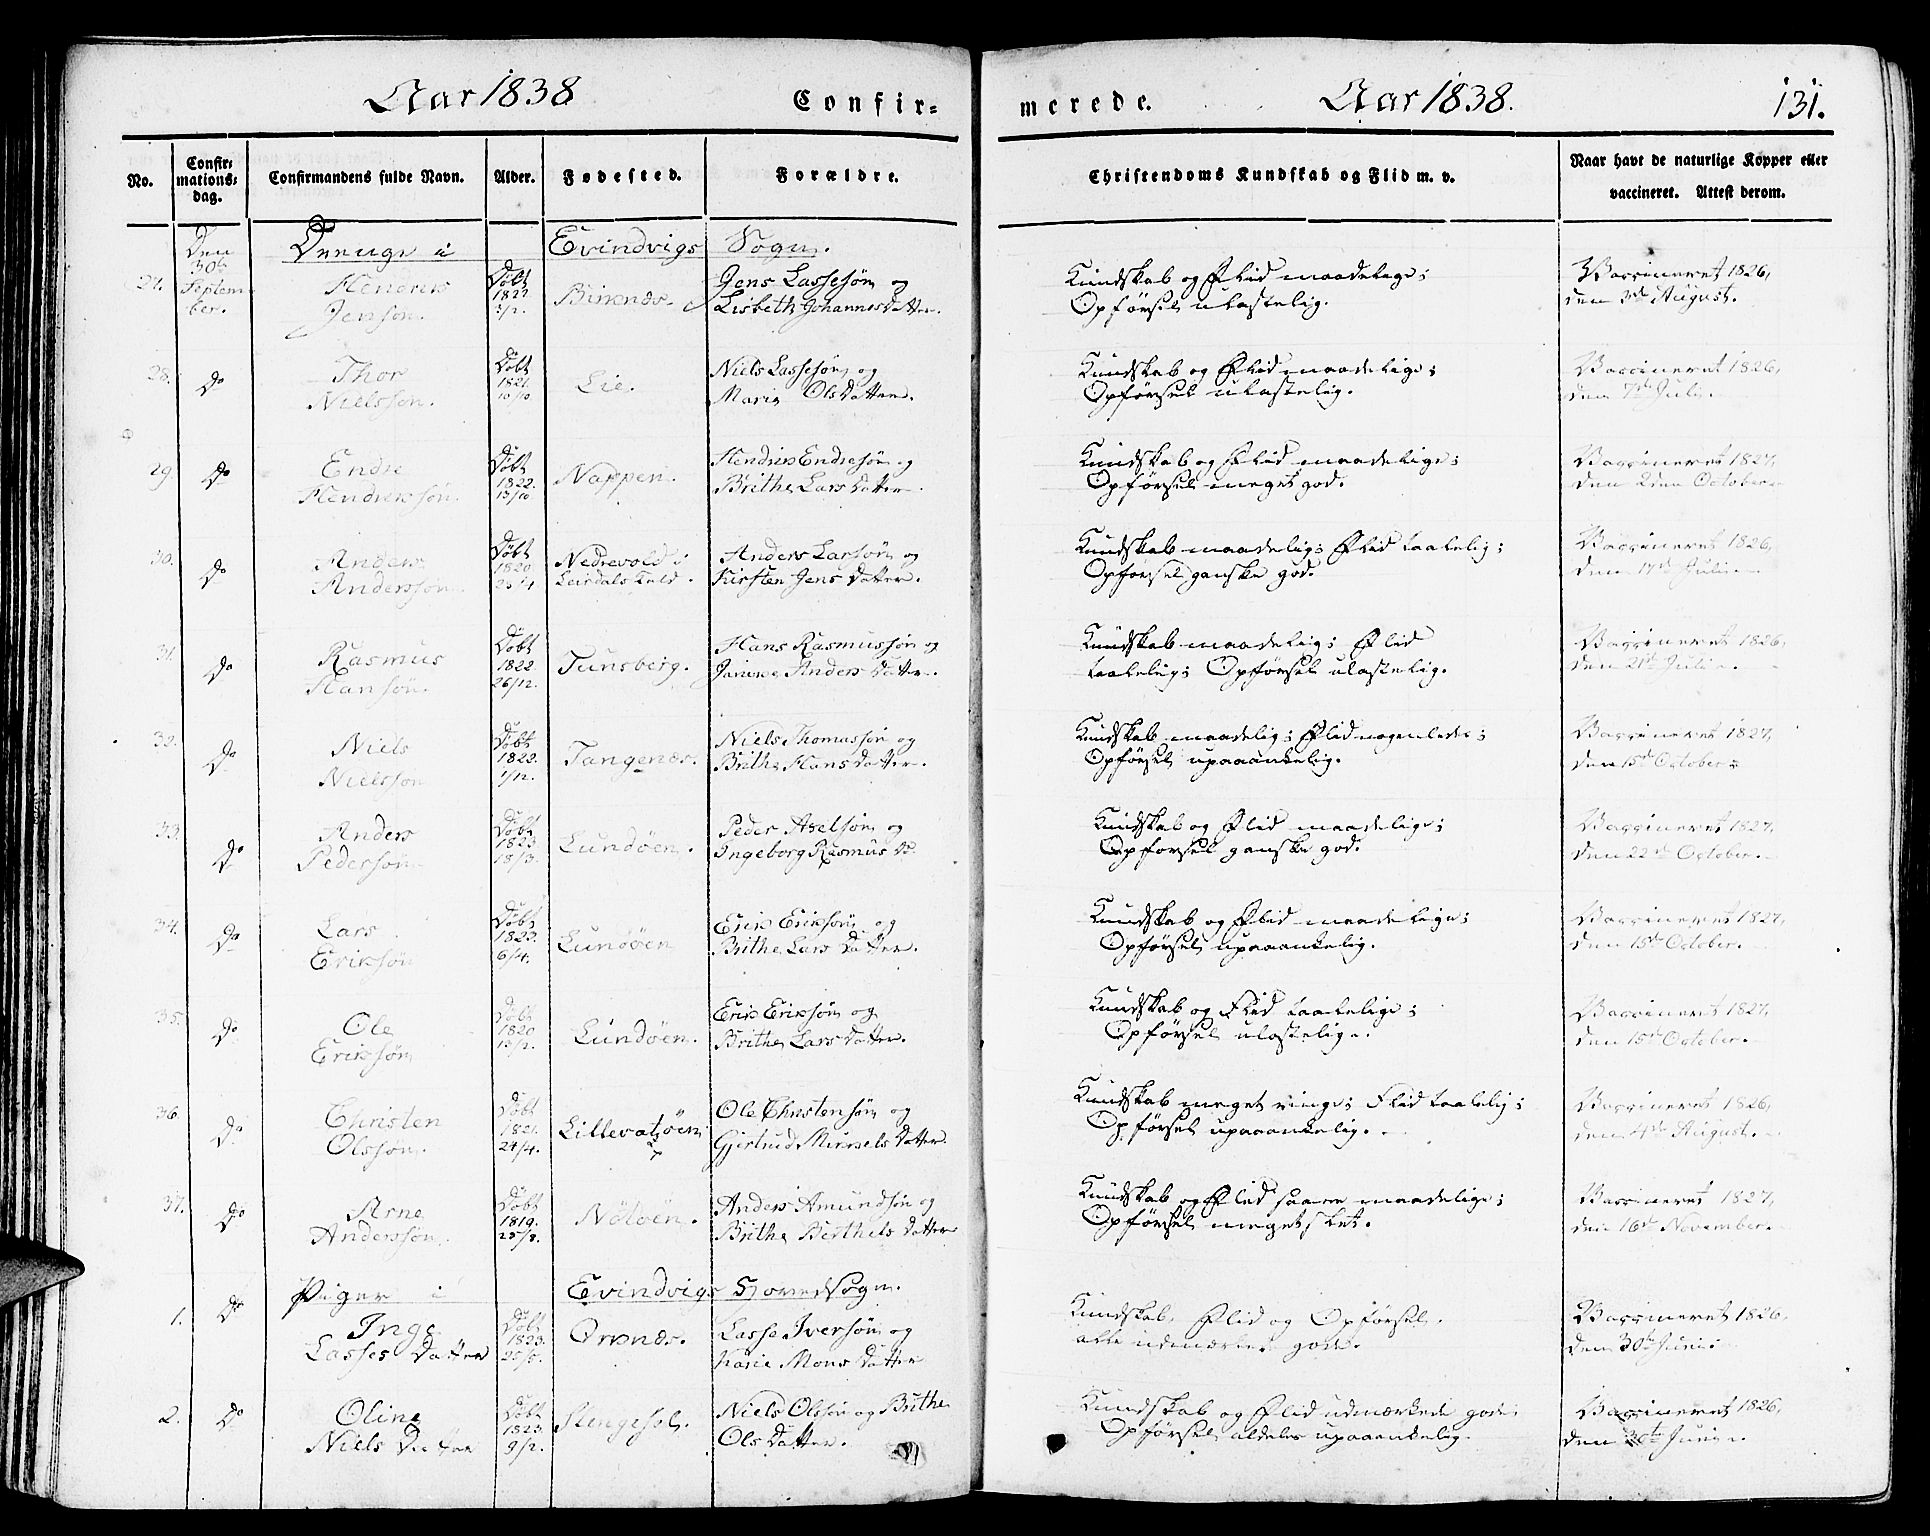 Aar 1838 Confir=
No.
Confir=
mations=
dag.
Confirmandens fulde Navn.
Alder.
Fødested.
Forældre.
Den Drenge i Evindvigs Sogn.
30te
27. Septem- Hendrik Døbt Jens Lassesøn og
ber. Jensøn. 1822. Birknæs. Lisbeth Johannes Datter.
28. Do Thor Døbt Niels Lassesøn og
Nielssøn. 1821. 10/10 Lie. Marie Ols Datter.
29 Do Endre Døbt Hendrik Endresøn og
Hendriksøn. 1822. 13/10 Nappen. Brithe Lars Datter.
30. Do Anders Døbt Nedrevold i Anders Larsøn og
Anderssøn. 1820 Leirdals Kirsten Jens Datter.
31. Do Rasmus Døbt Hans Rasmussøn og
Hansøn. 1822. 26/12. Tunsberg. Anders Datter.
32. Do Niels Døbt Niels Thomassøn og
Nielssøn 1822. 1/12. Tangenæs. Brithe Hans Datter.
33. Do Anders Døbt Peder Axelsøn og
Pedersøn 1823 18/3. Lundøen. Ingeborg Rasmus Do
34. Do Lars Døbt Erik Eriksøn og
Eriksøn 1823. 6/4. Lundøen Brithe Lars Datter.
35. Do Ole Døbt Erik Eriksøn og
Eriksøn 1820 13/2. Lundøen. Brithe Lars Datter.
36. Do Christen Døbt Ole Christensøn og
Olssøn. 1821. 24/4. Lillevatsøen Gjertrud Mikkels Datter.
37. Do Arne Døbt Anders Amundsøn og
Anderssøn. 1819. 25/8. Nötøen. Brithe Berthels Datter
Piger i Evindvigs Hovedsogn.
1. Do Inge Døbt Lasse Iversøn og
Lasses Datter 1823. 25/5. Ørknæs. Karie Mons Datter
2. Do Oline Døbt Niels Olssøn og Brithe
Niels Datter 1823. 9/2. Stengesol. Ols Datter.
merede. Aar 1838. 131.
Christendoms Kundskab og Flid m. v.
Naar havt de naturlige Kopper eller
vaccineret. Attest derom.
Kundskab og Flid maadelige; Vaccineret 1826,
Opførsel ulastelig. den 3die August.
Kundskab og Flid maadelige; Vaccineret 1826,
Opførsel ulastelig. den 7de Juli.
Kundskab og Flid maadelige; Vaccineret 1827,
Opførsel meget god. den 2den October.
Kundskab maadelig; Flid taalelig; Vaccineret 1826,
Opførsel ganske god. den 17de Juli.
Kundskab maadelig; Flid Vaccineret 1826,
taalelig; Opførsel ulastelig. den 21de Juli.
Kundskab maadelig; Flid nogenledes; Vaccineret 1827,
Opførsel upaaankelig. den 15de October.
Kundskab og Flid maadelige; Vaccineret 1827,
Opførsel ganske god. den 22de October.
Kundskab og Flid maadelige; Vaccineret 1827,
Opførsel upaaankelig. den 15de October.
Kundskab og Flid taalelige; Vaccineret 1827,
Opførsel ulastelig. den 15de October.
Kundskab meget ringe; Flid taalelig; Vaccineret 1826,
Opførsel upaaankelig. den 4de August.
Kundskab og Flid saare maadelige; Vaccineret 1827,
Opførsel meget slet. den 16de November.
Kundskab, Flid og Opførsel Vaccineret 1826,
alle udmærket gode. den 30te Juni.
Kundskab og Flid udmærkede gode Vaccineret 1826,
Opførsel aldeles upaaankelig. den 30te Juni.